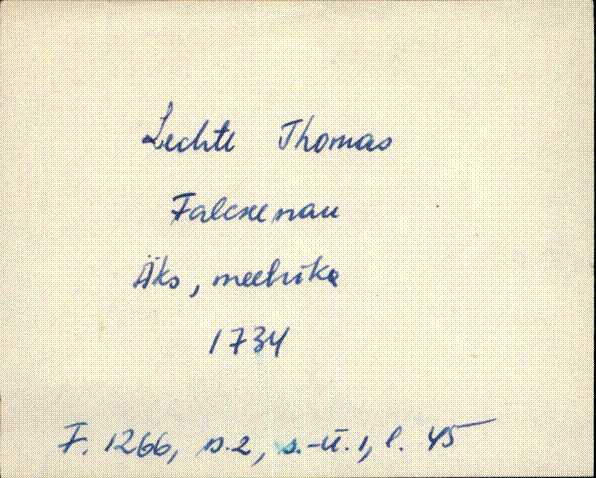 Lechte Thomas
Falcxenau
Äks, meetrika
1734
F. 1266, n. 2, s.-ü. 1, l. 45